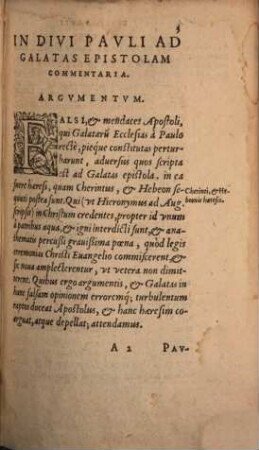 IN DIVI PAVLI AD
GALATAS EPISTOLAM
COMMENTARIA.
ARGVMENTVM.
FALSI, & mendaces Apostoli,
qui Galatarū Ecclesias à Paulo
rectè, pieque constitutas pertur-
barunt, adversus quos scripta
est ad Galatas epistola. in ea
fuere hæresi, quam Cherintus, & Hebeon se-
quuti postea sunt. Qui (ut Hieronymus ad Aug.
scripsit) in Christum credentes, propter id vnum
à patribus aqua, & igni interdicti sunt, & ana-
thematis percussi gravissima pœna, quòd legis
ceremonias Christi Euangelio commiscerent, &
sic noua amplecterentur, ut vetera non dimit-
terent. Quibus ergo argumentis, & Galatas in
hanc falsam opinionem erroremq; turbulentum
raptos doceat Apostolus, & hanc hæresim co-
arguat, atque depellat, attendamus.
Cherinti, & He-
beonis hæresis.
A 2 PAV-